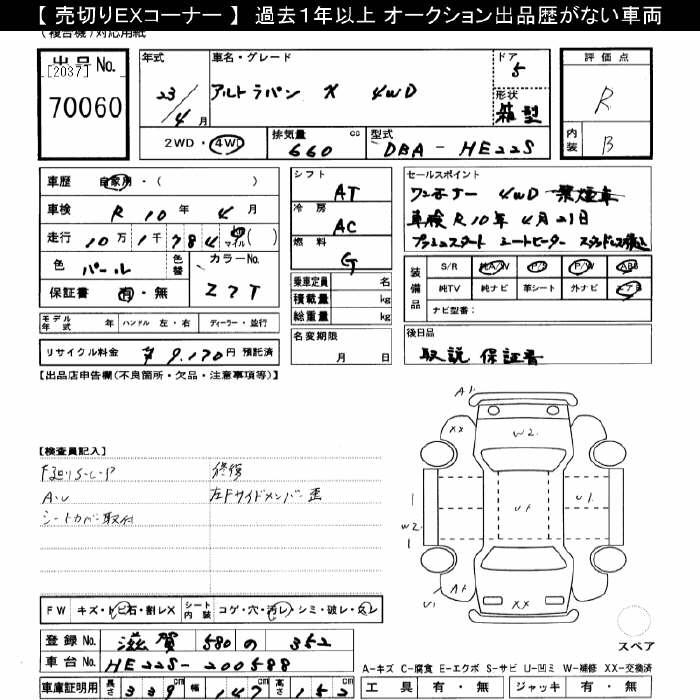 【 売切りEXコーナー 】 過去1年以上 オークション出品歴がない車両
(複合機)対応用紙
出品 No.
[2037]
70060
年式
23/4月
車名・グレード
アルトラパン X 4WD
ドア
5
形状
箱型
2WD・4WD
排気量 660 cc
型式 DBA-HE22S
評価点
R
内装
B
車歴 自家用・( )
車検 R10年 4月
走行 10万1千784 km マイル ( )
色 パール 色替
カラーNo.
Z7T
保証書 有・無
モデル年式 年 ハンドル 左・右 ディーラー・並行
リサイクル料金 ¥9,170円 預託済
シフト
AT
冷房
AC
燃料
G
乗車定員 名
積載量 kg
総重量 kg
名変期限
月 日
セールスポイント
ワンオーナー 4WD 禁煙車
車検R10年4月21日
プッシュスタート シートヒーター
装備品
S/R 純A/W P/S P/W ABS
純TV 純ナビ 革シート 外ナビ エアB
ナビ型番:
後日品
取説 保証書
【出品店申告欄(不良箇所・欠品・注意事項等)】
【検査員記入】
F廻りS-C-P
A・U
シートカバー取付
修復
左Fサイドメンバー歪
A1
XX
W2
U1
U1
1
W2
1
A1
U1
XX
スペア
FW キズ・トビ石・割レX シート内装 コゲ・穴・汚レ・シミ・破レ・スレ
登録 No. 滋賀 580 の 352
車台 No. HE22S-200588
車庫証明用 長さ 339cm 幅 147cm 高さ 152cm
A-キズ C-腐食 E-エクボ S-サビ U-凹ミ W-補修 XX-交換済
工具 有・無 ジャッキ 有・無